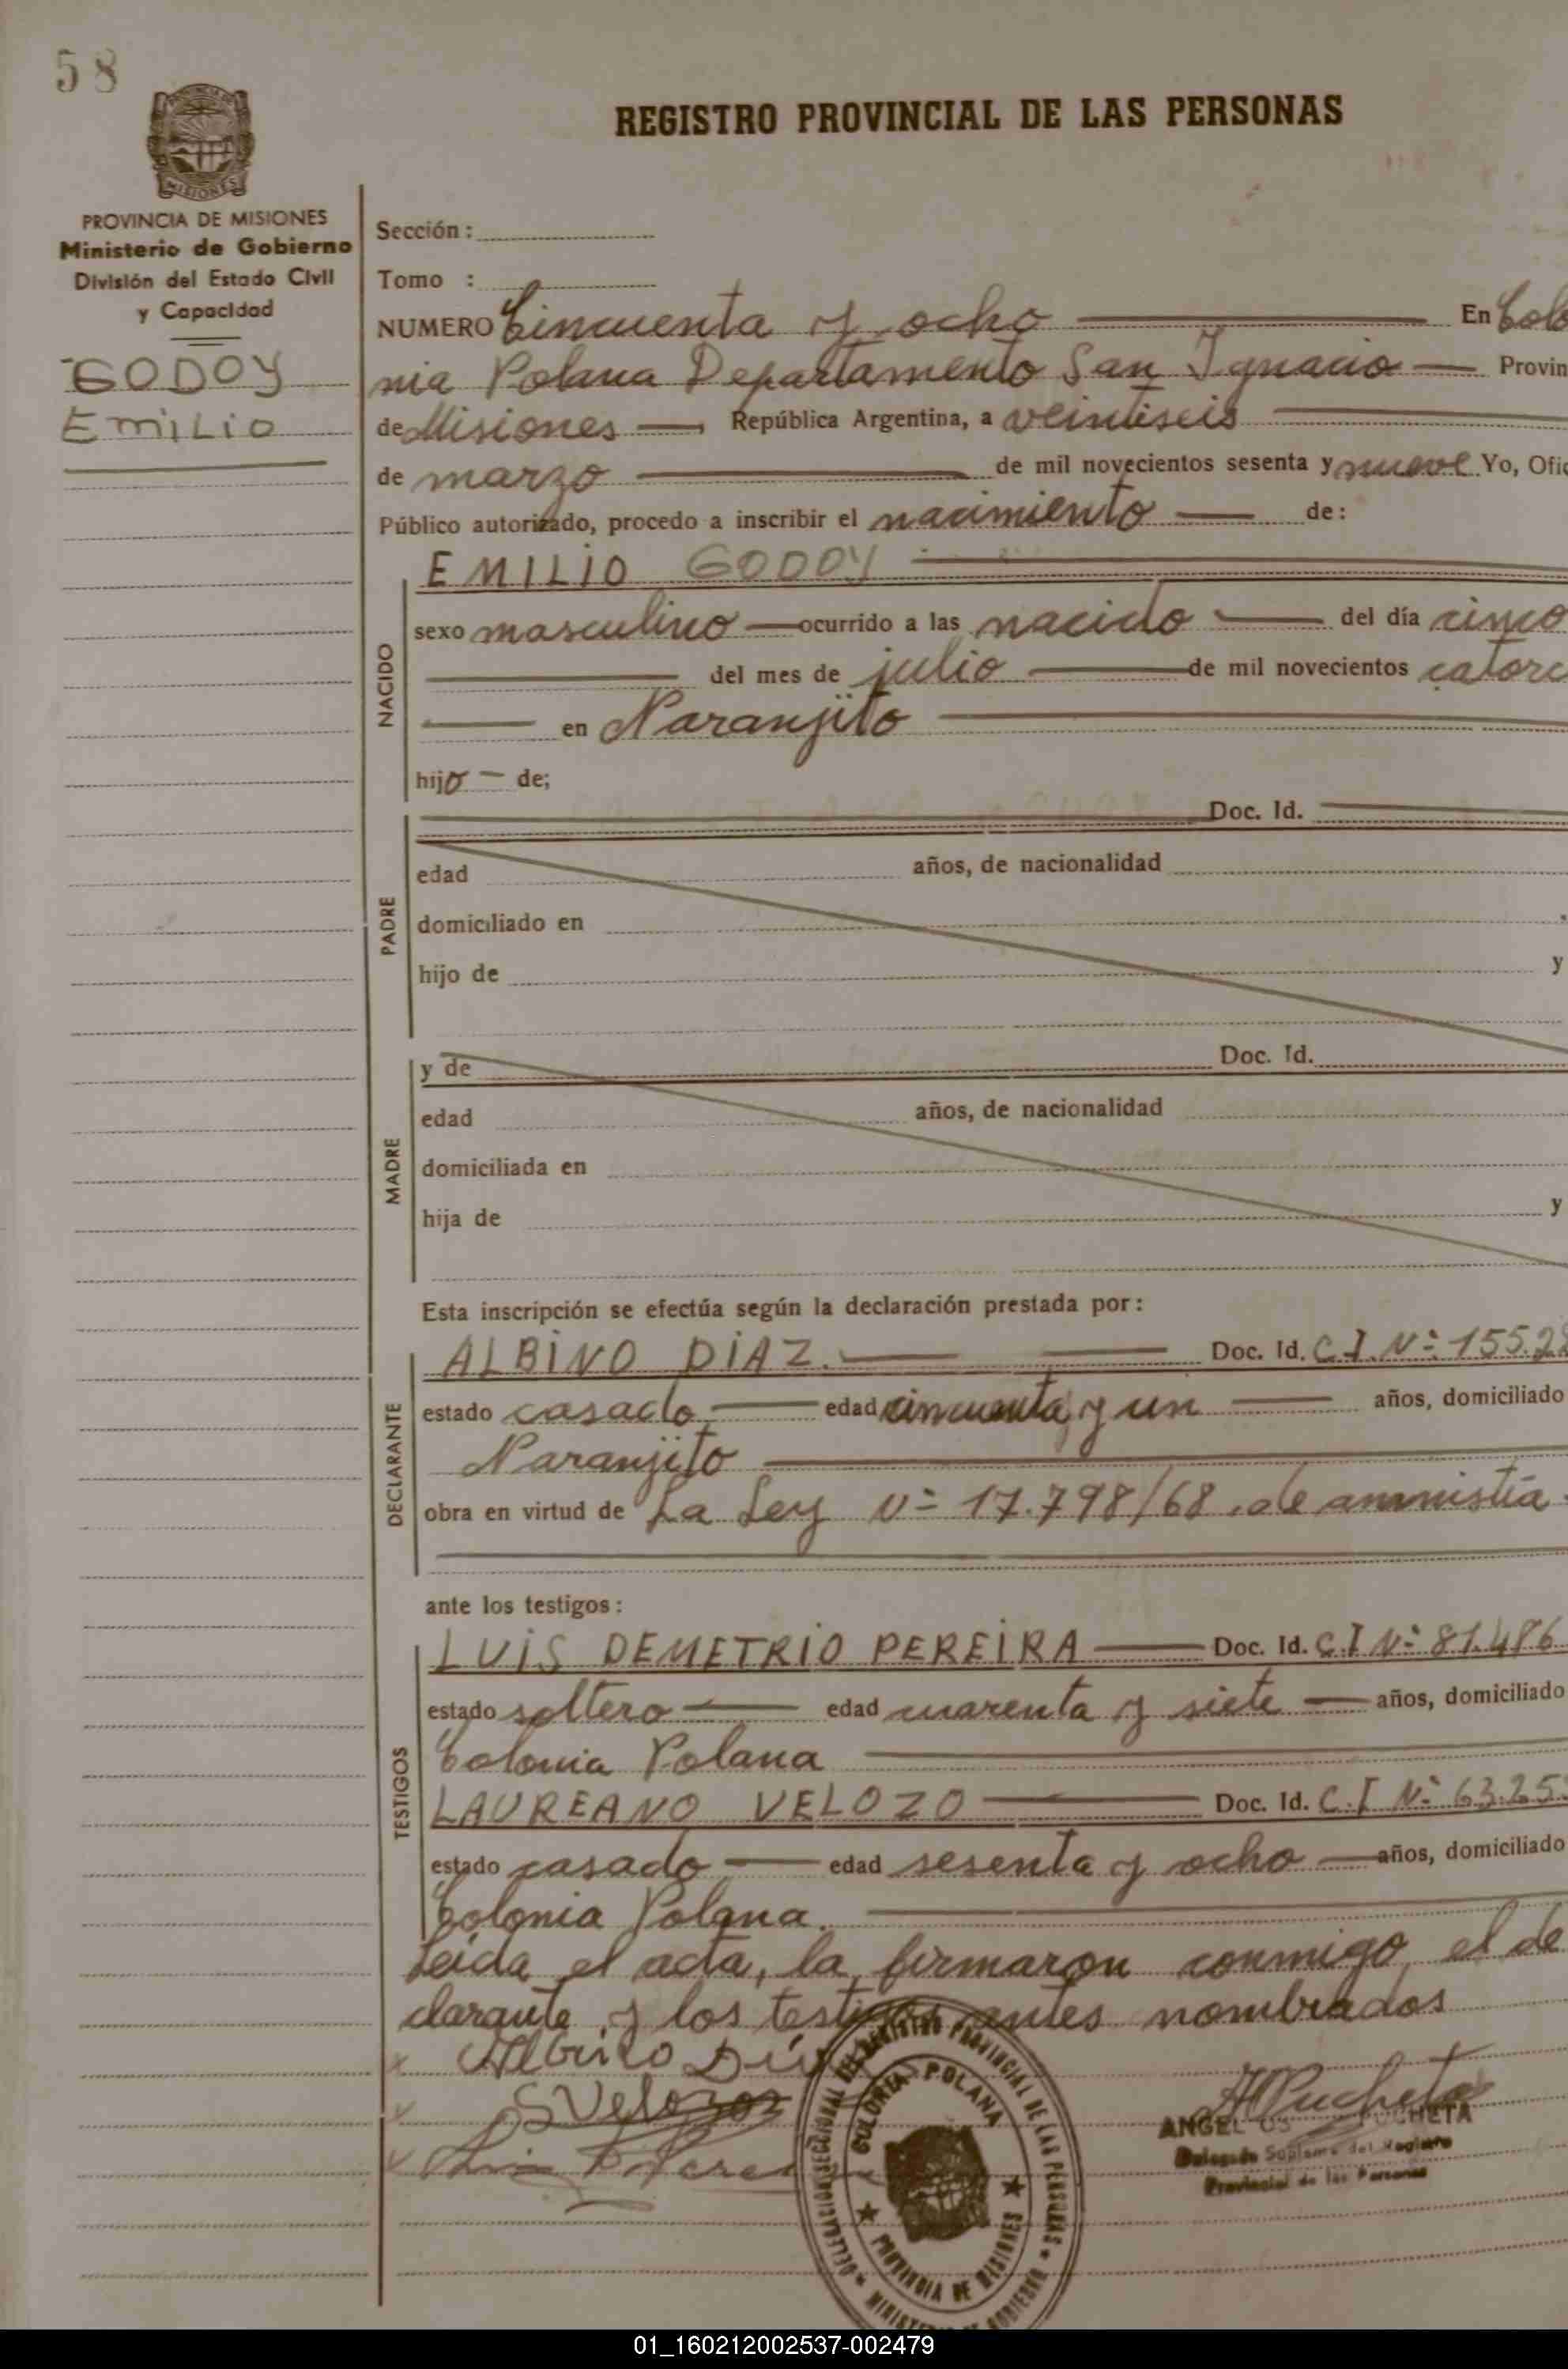 58
REGISTRO PROVINCIAL DE LAS PERSONAS
MISIONES
PROVINCIA DE MISIONES
Ministerio de Gobierno
División del Estado Civil
y Capacidad
GODOY
EMILIO
Sección :
Tomo :
NUMERO Cincuenta y ocho En Colo
nia Polana Departamento San Ignacio Provin
de Misiones República Argentina, a veintiseis
de marzo de mil novecientos sesenta y nueve Yo, Ofic
Público autorizado, procedo a inscribir el nacimiento de:
NACIDO
EMILIO GODOY
sexo masculino ocurrido a las nacido del día cinco
del mes de julio de mil novecientos catorc
en Naranjito
hijo de;
PADRE
Doc. Id.
edad años, de nacionalidad
domiciliado en
hijo de y
MADRE
y de Doc. Id.
edad años, de nacionalidad
domiciliada en
hija de y
Esta inscripción se efectúa según la declaración prestada por:
DECLARANTE
ALBINO DIAZ. Doc. Id. C.I. Nº 155.28
estado casado edad cincuenta y un años, domiciliado
Naranjito
obra en virtud de La Ley Nº 17.798/68 de amnistía
ante los testigos:
TESTIGOS
LUIS DEMETRIO PEREIRA Doc. Id. C.I Nº 81.486
estado soltero edad cuarenta y siete años, domiciliado
Colonia Polana
LAUREANO VELOZO Doc. Id. C.I Nº 63.253
estado casado edad sesenta y ocho años, domiciliado
Colonia Polana.
Leida el acta, la firmaron conmigo, el de
clarante y los testigos antes nombrados
x Albino Díaz
x Velozo
x
Pucheta
ANGEL PUCHETA
Delegado Suplente del Registro
Provincial de las Personas
DELEGACION SECCIONAL DEL REGISTRO PROVINCIAL DE LAS PERSONAS
COLONIA POLANA
PROVINCIA DE MISIONES
MINISTERIO DE GOBIERNO
01_160212002537-002479